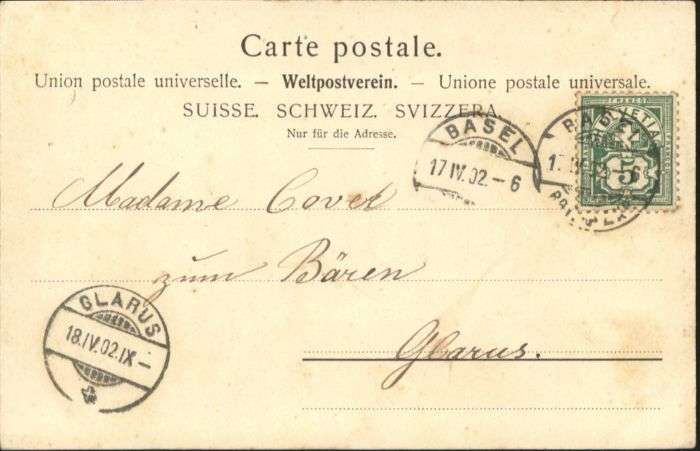 Carte postale.
Union postale universelle. — Weltpostverein. — Unione postale universale.
SUISSE. SCHWEIZ. SVIZZERA.
Nur für die Adresse.
BASEL
17 IV. 02. – 6
FRANCO
HELVETIA
5
Madame Covet
zum Bären
Glarus.
GLARUS
18. IV. 02. IX –